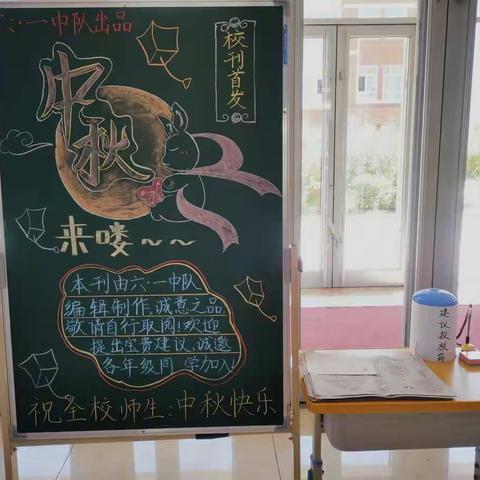 六·一中队出品
校刊首发
中秋
来喽~~
本刊由六·一中队
编辑制作,诚意之品,
敬请自行取阅!欢迎
提出宝贵建议,诚邀
各年级同学加入!
祝全校师生:中秋快乐
建议投放箱